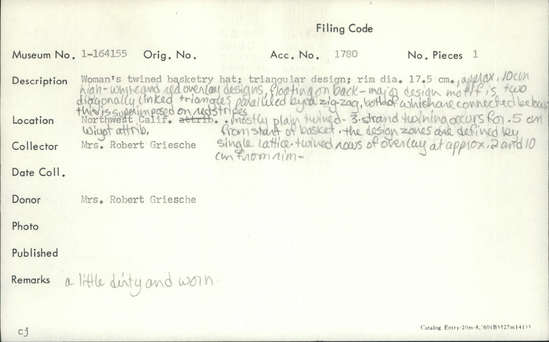 Filing Code
Museum No. 1-164155 Orig. No. Acc. No. 1780 No. Pieces 1
Description Woman's twined basketry hat; triangular design; rim dia. 17.5 cm., approx. 10cm
high - white and red overlay designs, floating on back - major design motif is two
diagonally linked triangles paralleled by a zig-zag, both of which are connected below
this is superimposed on red stripes
Location Northwest Calif. attrib. . mostly plain twined - 3-strand twining occurs for .5 cm
Wiyot attrib. from start of basket. the design zones are defined by
Collector Mrs. Robert Griesche single lattice-twined rows of overlay at approx. 2 and 10
cm from rim -
Date Coll.
Donor Mrs. Robert Griesche
Photo
Published
Remarks a little dirty and worn.
cj
Catalog Entry-20m-8,'60